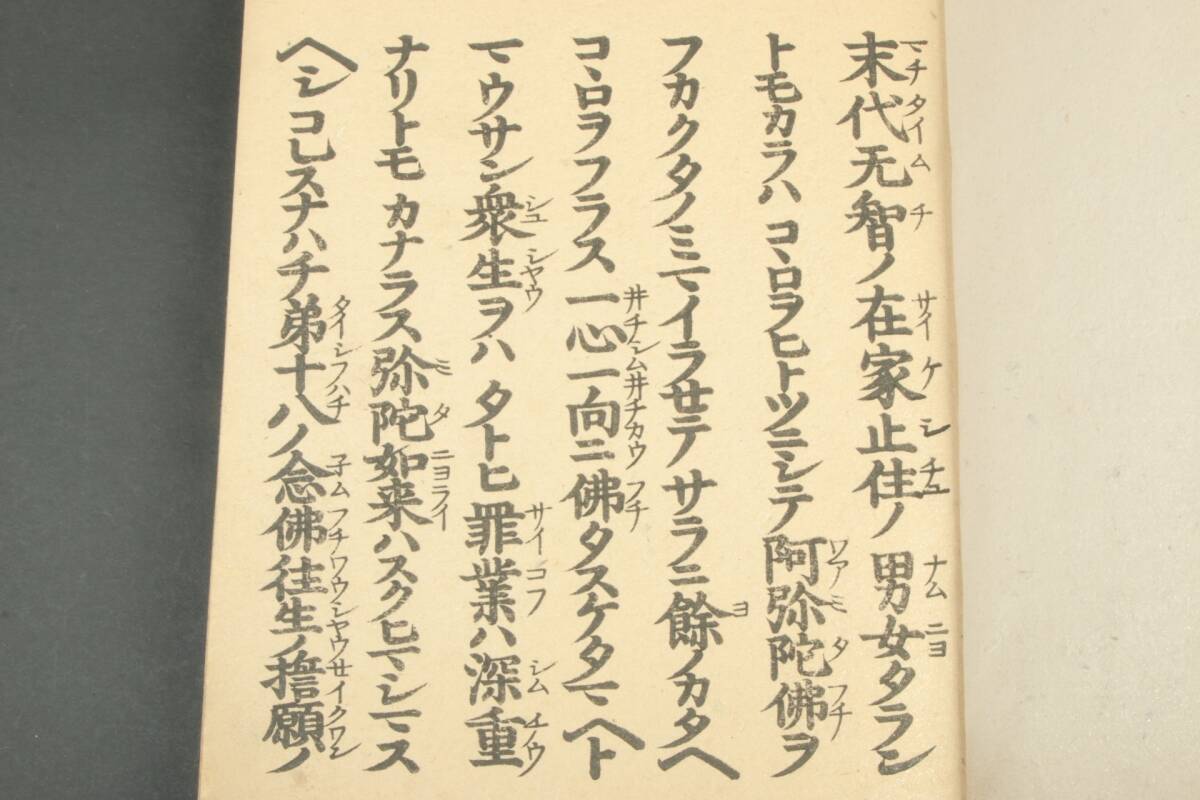 末代无智ノ在家止住ノ男女タラン
トモカラハコヽロヲヒトツニシテ阿弥陀佛ヲ
フカクタノミマイラセテサラニ餘ノカタヘ
コヽロヲフラス一心一向ニ佛タスケタマヘト
マウサン衆生ヲハタトヒ罪業ハ深重
ナリトモカナラス弥陀如来ハスクヒマシマス
ヘシコレスナハチ弟十八ノ念佛往生ノ誓願ノ